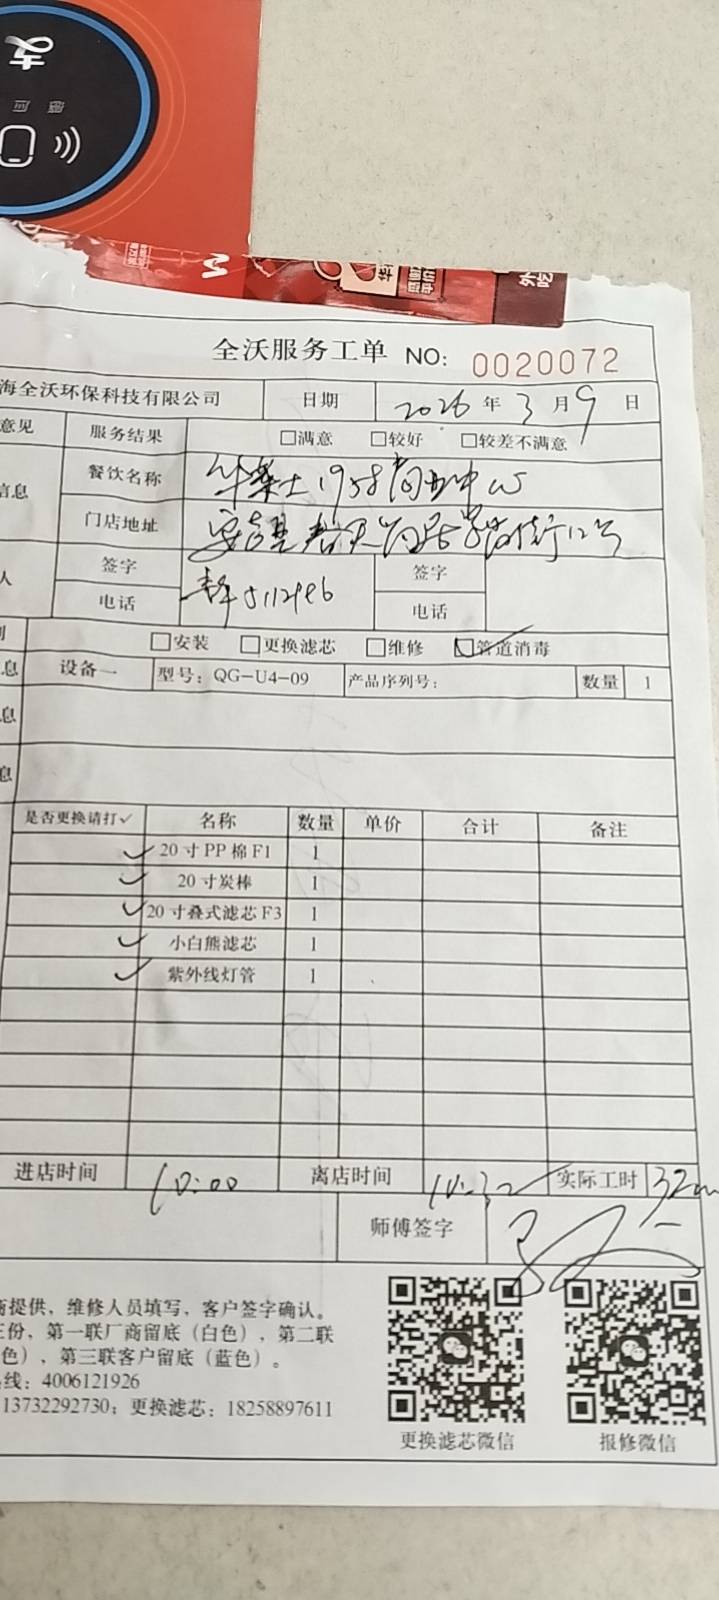 支
全沃服务工单 NO: 0020072
海全沃环保科技有限公司 日期 2026 年 3 月 9 日
意见 服务结果 □满意 □较好 □较差不满意
信息 餐饮名称 华莱士1958商业中心
门店地址 12号
人 签字 签字
电话 电话
别 □安装 □更换滤芯 □维修 ☑管道消毒
息 设备一 型号: QG-U4-09 产品序列号: 数量 1
息
息
是否更换请打✓ 名称 数量 单价 合计 备注
✓ 20寸PP棉F1 1
✓ 20寸炭棒 1
✓ 20寸叠式滤芯F3 1
✓ 小白熊滤芯 1
✓ 紫外线灯管 1
进店时间 10:00 离店时间 10:32 实际工时 32m
师傅签字
商提供、维修人员填写、客户签字确认。
三份，第一联厂商留底（白色），第二联
色），第三联客户留底（蓝色）。
线: 4006121926
13732292730; 更换滤芯: 18258897611
更换滤芯微信 报修微信